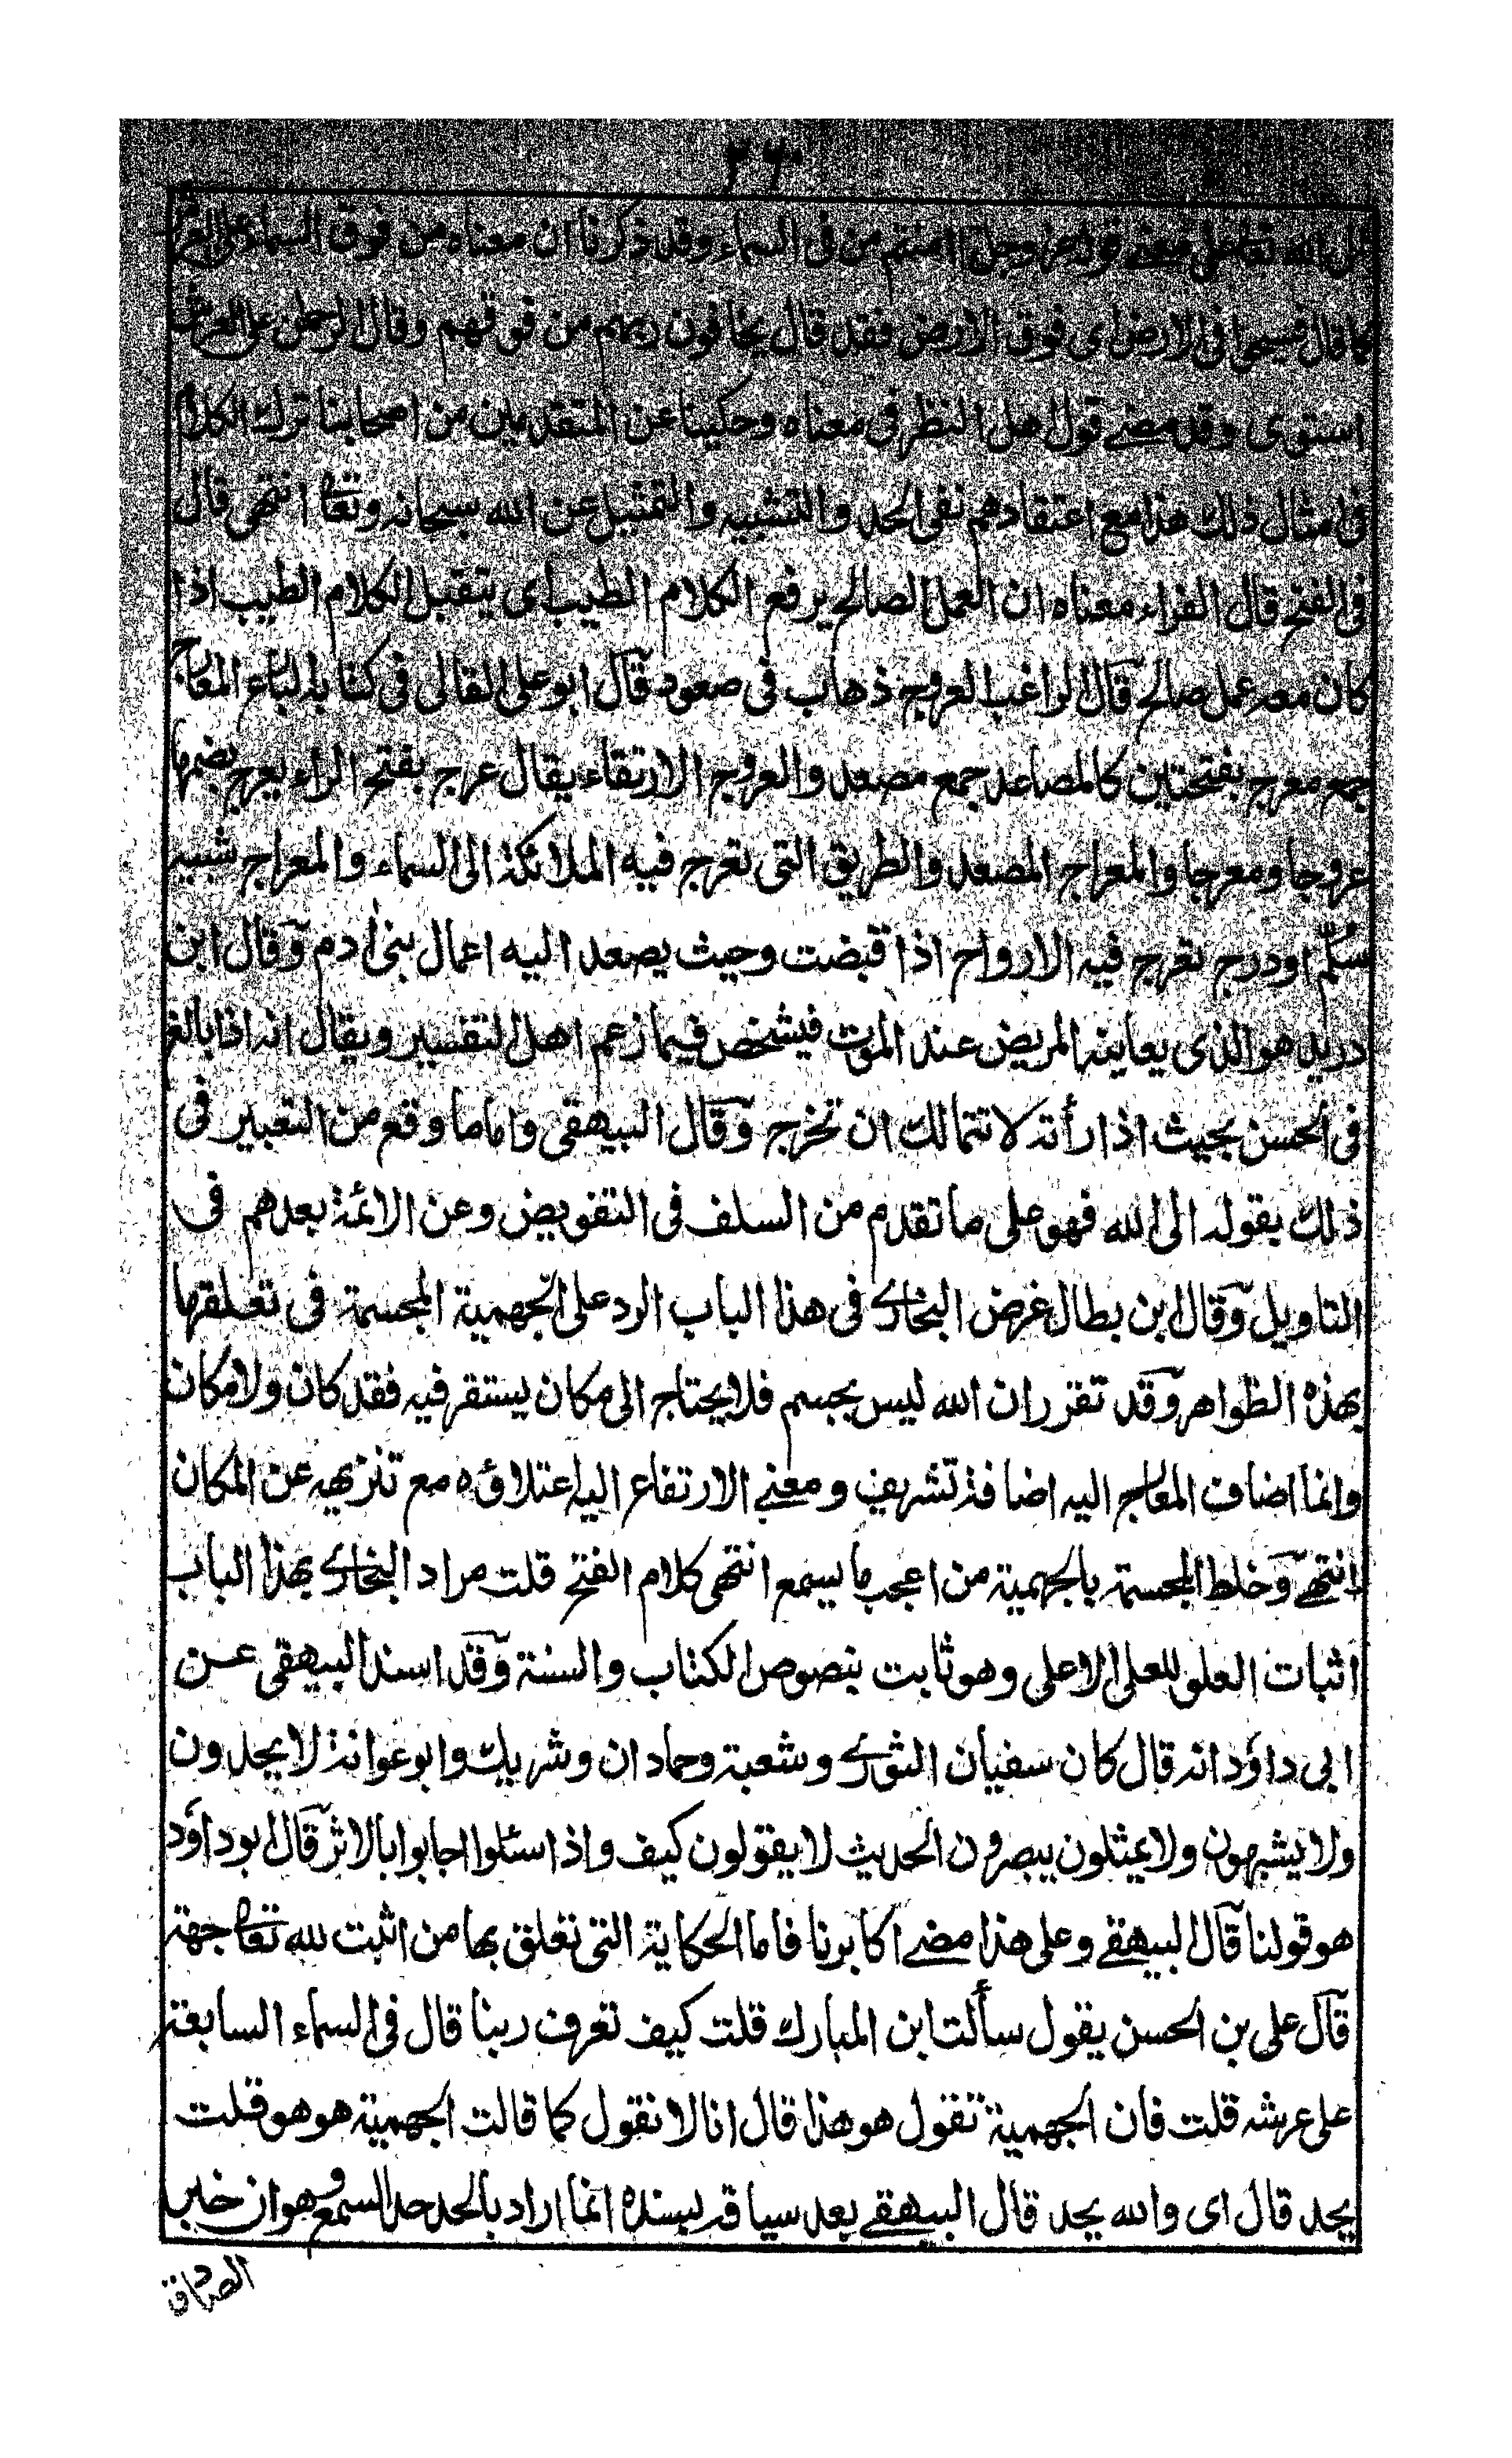 ٢٦٠
الله تعالى معنى قوله عز وجل أامنتم من فى السماء وقد ذكرنا ان معناه من فوق السماء على العرش
كما قال فسيحوا فى الارض اى فوق الارض فقد قال يخافون ربهم من فوقهم وقال الرحمن على العرش
استوى وقد مضے قول اهل النظر فى معناه وحكينا عن المتقدمين من اصحابنا ترك الكلام
فى امثال ذلك هذا مع اعتقادهم نفى الحد والتشبيه والتمثيل عن الله سبحانه وتعا انتهى قال
فى الفتح قال الفراء معناه ان العمل الصالح يرفع الكلام الطيب اى يتقبل الكلام الطيب اذا
كان معه عمل صالح قال الراغب العروج ذهاب فى صعود قال ابو على القالى فى كتابه البارع المعارج
جمع معرج بفتحتين كالمصاعد جمع مصعد والعروج الارتقاء يقال عرج بفتح الراء يعرج بضمها
عروجا ومعرجا والمعراج المصعد والطريق التى تعرج فيه الملائكة الى السماء والمعراج شبيه
سُلّم او درج تعرج فيه الارواح اذا قبضت وحيث يصعد اليه اعمال بنى أدم وقال ابن
دريد هو الذى يعاينه المريض عند الموت فيشخص فيما زعم اهل التفسير ويقال انه اذا بالغ
فى الحسن بحيث اذا رأته لا تتمالك ان تخرج وقال البيهقى واما ما وقع من التعبير فى
ذلك بقوله الى الله فهو على ما تقدم من السلف فى التفويض وعن الائمة بعدهم فى
التاويل وقال ابن بطال غرض البخارے فى هذا الباب الرد على الجهمية المجسمة فى تعلقها
بهذه الظواهر وقد تقرر ان الله ليس بجسم فلا يحتاج الى مكان يستقر فيه فقد كان ولا مكان
وانما اضاف المعارج اليه اضافة تشريف ومعنے الارتفاع اليه اعتلاؤه مع تنزيهه عن المكان
انتهے وخلط المجسمة بالجهمية من اعجب ما يسمع انتهى كلام الفتح قلت مراد البخارے بهذا الباب
اثبات العلو للعلى الاعلى وهو ثابت بنصوص الكتاب والسنة وقد اسند البيهقى عن
ابى داؤد انه قال كان سفيان الثورے وشعبة وحمادان وشريك وابو عوانة لا يحدون
ولا يشبهون ولا يمثلون يبصرون الحديث لا يقولون كيف واذا سئلوا اجابوا بالاثر قال ابو داؤد
هو قولنا قال البيهقے وعلى هذا مضے اكابرنا فاما الحكاية التى تعلق بها من اثبت لله تعا جهة
قال على بن الحسن يقول سألت ابن المبارك قلت كيف تعرف ربنا قال فى السماء السابعة
على عرشه قلت فان الجهمية تقول هو هذا قال انا لا نقول كما قالت الجهمية هو هو قلت
بحد قال اى والله بحد قال البيهقے بعد سياقه بسنده انما اراد بالحد حد السمع وهو ان خبر
الصادق